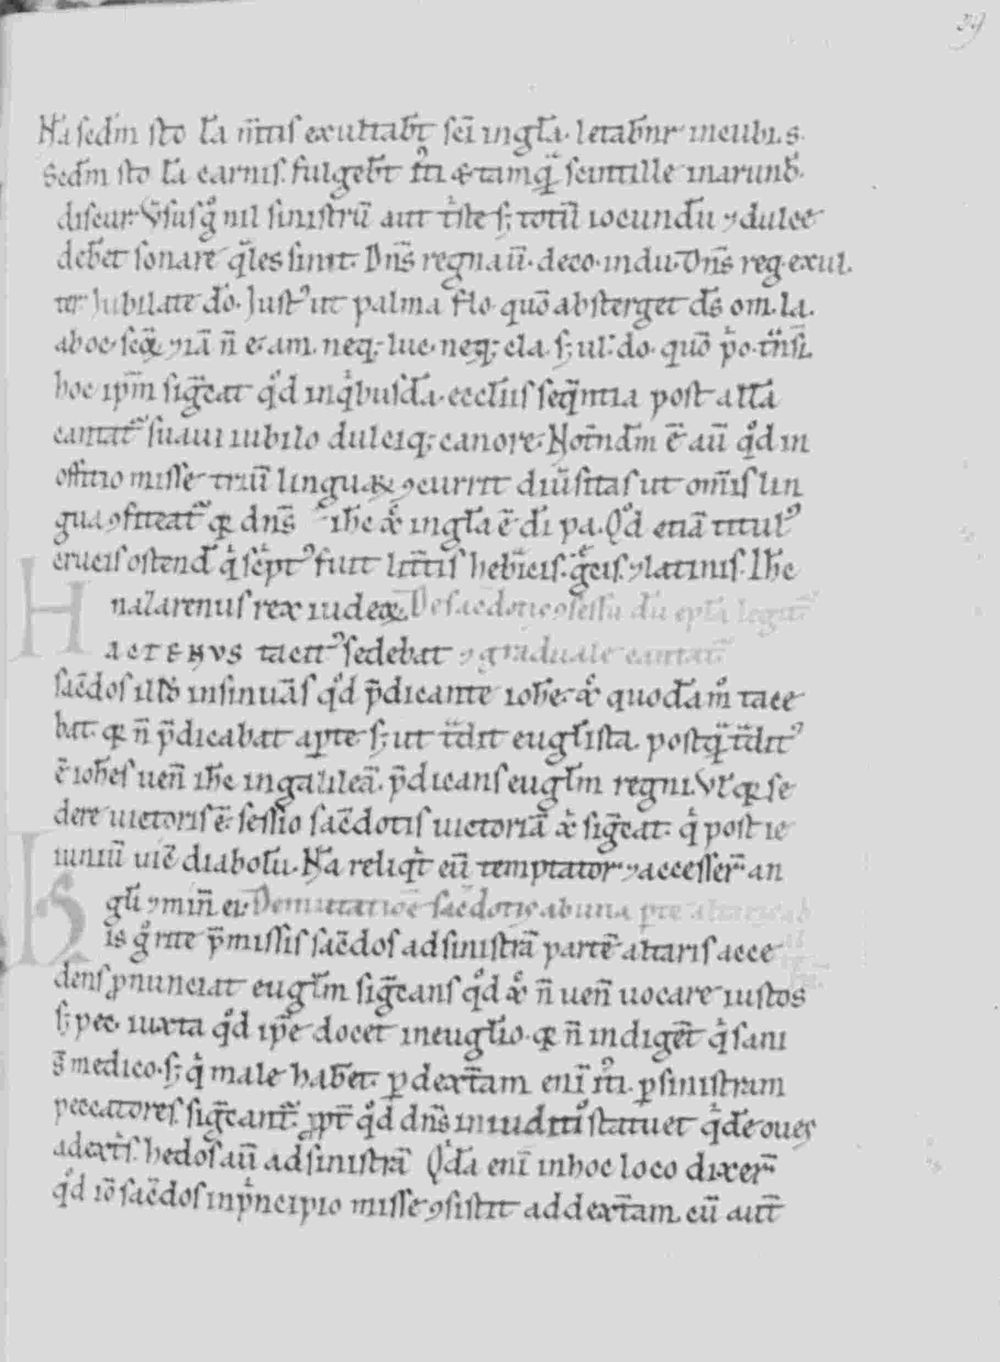 39
Nā sedm sto lā m̄tis exultabt̄ sci inglā. letabn̄r incubi. s.
Sedm sto lā carnis. fulgebt̄ iti ⁊ tamq̄ scintille inarund.
discur. Vs̄usq̊ nil sinistrū aut tste s; totū iocundū ⁊ dulce
debet̄ sonare q̄les sunt. Dn̄s regnauit̄. deco. indu. Dn̄s reg. exul.
ter. Iubilate do. Just᾽ ut palma flo. quō absterget ds om. la.
hoc ipm̄ sigc̄at qd̊ inqͥbusdā. ecclīis seqn̄tia post allā
cantat᾽ suaui iubilo dulciq; canore. Notn̄dm ē au̅ qd̊ in
offitio misse triū linguaꝝ ꝯcurrit diu̅sitas ut om̄is lin
gua ꝯfiteat᾽ qꝛ dn̄s ihc xp̄c inglā ē di pa. Qd̊ etiā titul᾽
crucis ostend̄ qͥ scͥpt᾽ fuit litt̄is hebr̄icis. gͤcis. ⁊ latinis. Ihc
nazarenus rex iudeoꝝ. De sacdotis ꝯsessu dū epl̄a legit᾽
HACTENVS tacit᾽ sedebat ⁊ graduale cantat᾽
sac̄dos illd̄ insinuās qd̊ p̄dicante iohe. xp̄c quodāmͦ tace
bat. qꝛ n̄ p̄dicabat apte s; ut tᷓdit eugl̄ista. postqᷓ tᷓdit᾽
ē iohes uen̄ ihc ingalileā. p̄dicans eugl̄m regni. Vl̄ qꝛ se
dere uictoris ē. sessio sac̄dotis uictoriā xp̄i sigc̄at. qͥ post ie
iuniū uic̄ diabolū. Nā reliqͥt eū temptator ⁊ accesser̄ an
gli ⁊ min̄ ei. De mutatioē sac̄dotis ab una pte altaris
His gͦ rite p̄missis sac̄dos ad sinistrā partē altaris acce
dens ꝓnunciat eugl̄m sigc̄ans qd̊ xp̄c n̄ uen̄ uocare iustos
s; pec. iuxta qd̊ ip̄e docet in euglio. qꝛ n̄ indiget̄ qͥ sani
s̄ medico. s; qͥ male habent̄. p dextᷓam enī iti. p sinistram
peccatores. sigc̄ant᾽. ꝓpt̄ qd̊ dn̄s in iuditio statuet qͥdē oues
a dextͥs. hedos au̅ ad sinistrā Qͥdā enī in hoc loco dixer̄
qd̊ iō sac̄dos in pͥncipio misse ꝯsistit ad dextᷓam. cū aut̄